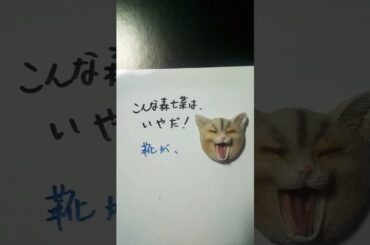 こんな森七菜は、
いやだ!
靴が、